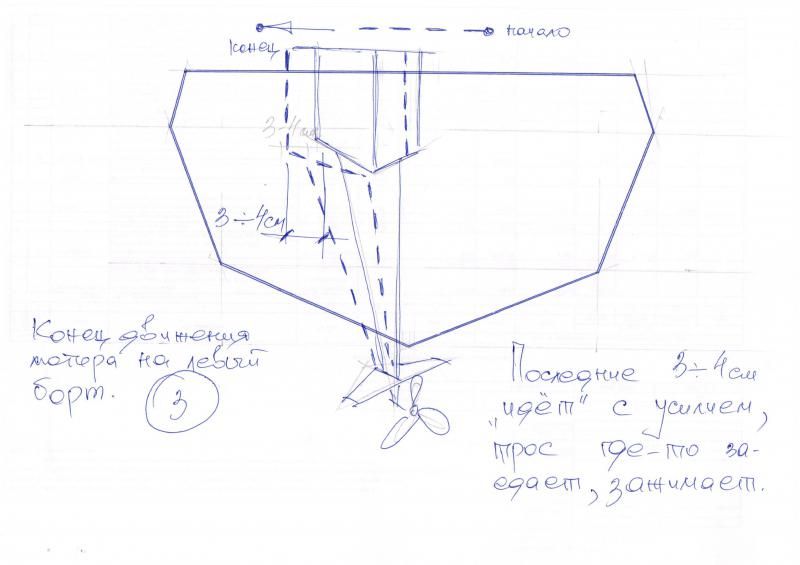 начало
Конец
3-4см
3÷4см
Конец движения
мотора на левый
борт.
3
Последние 3÷4см
„идёт" с усилием,
трос где-то за-
едает, зажимает.